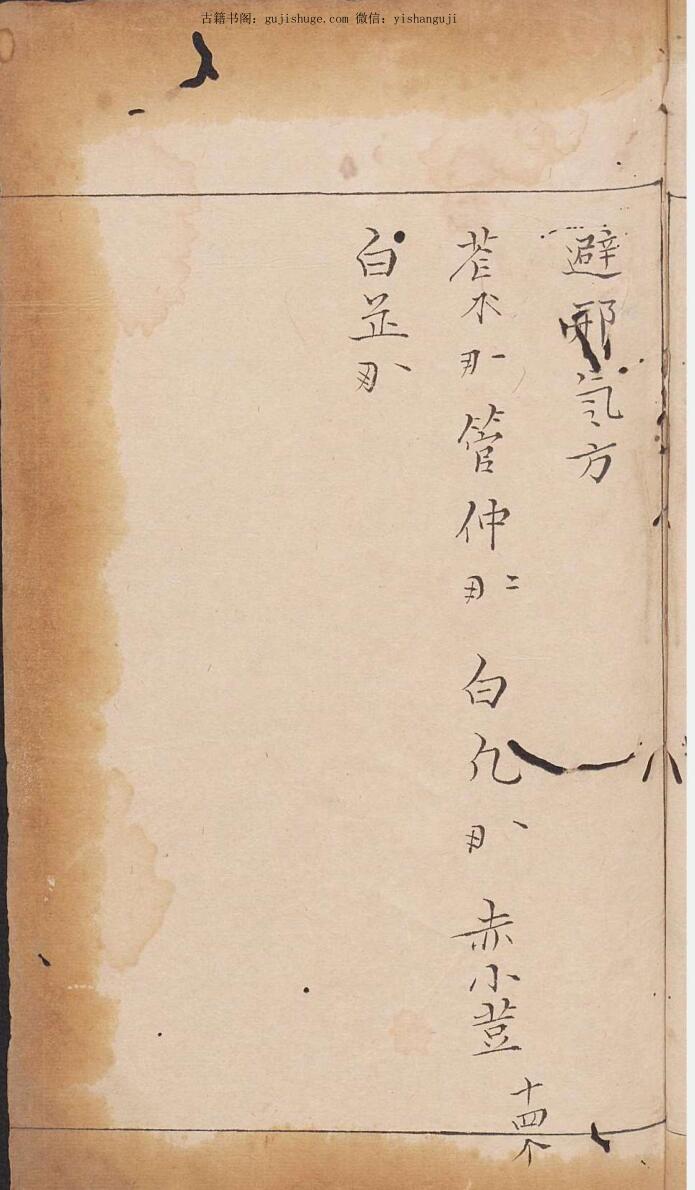 古籍书阁：gujishuge.com 微信：yishanguji
避邪氣方
管仲 二 白凡 赤小荳 十四个
白芷